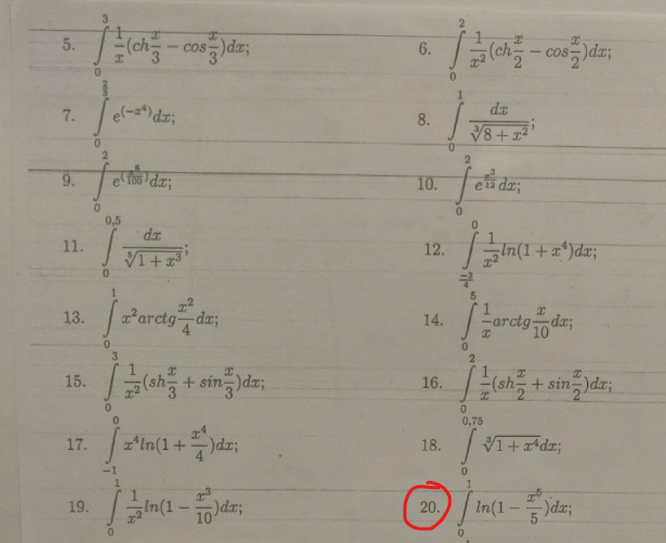 5. \int_{0}^{3} \frac{1}{x}(ch\frac{x}{3} - cos\frac{x}{3})dx; 6. \int_{0}^{2} \frac{1}{x^2}(ch\frac{x}{2} - cos\frac{x}{2})dx;
7. \int_{0}^{\frac{2}{3}} e^{(-x^4)}dx; 8. \int_{0}^{1} \frac{dx}{\sqrt[3]{8 + x^2}};
9. \int_{0}^{2} e^{(\frac{x^8}{100})}dx; 10. \int_{0}^{2} e^{\frac{x^3}{12}}dx;
11. \int_{0}^{0,5} \frac{dx}{\sqrt[5]{1 + x^3}}; 12. \int_{\frac{-3}{4}}^{0} \frac{1}{x^2}ln(1 + x^4)dx;
13. \int_{0}^{1} x^2arctg\frac{x^2}{4}dx; 14. \int_{0}^{5} \frac{1}{x}arctg\frac{x}{10}dx;
15. \int_{0}^{3} \frac{1}{x^2}(sh\frac{x}{3} + sin\frac{x}{3})dx; 16. \int_{0}^{2} \frac{1}{x}(sh\frac{x}{2} + sin\frac{x}{2})dx;
17. \int_{-1}^{0} x^4ln(1 + \frac{x^4}{4})dx; 18. \int_{0}^{0,75} \sqrt[3]{1 + x^4}dx;
19. \int_{0}^{1} \frac{1}{x^2}ln(1 - \frac{x^3}{10})dx; 20. \int_{0}^{1} ln(1 - \frac{x^5}{5})dx;